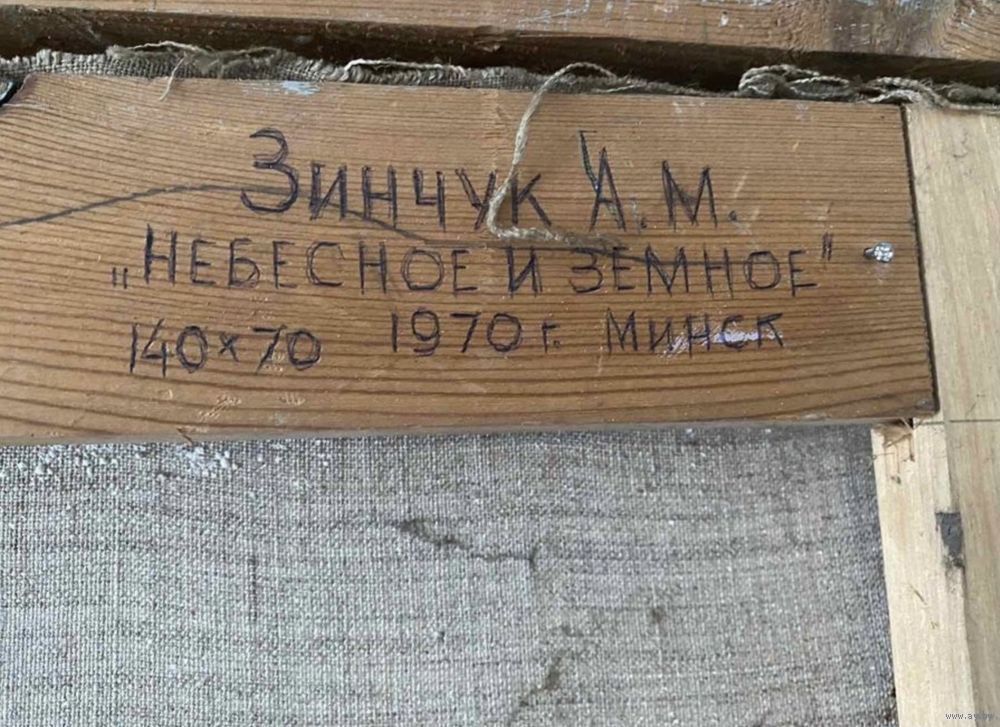 Зинчук А.М.
„НЕБЕСНОЕ И ЗЕМНОЕ"
140×70 1970 г. Минск